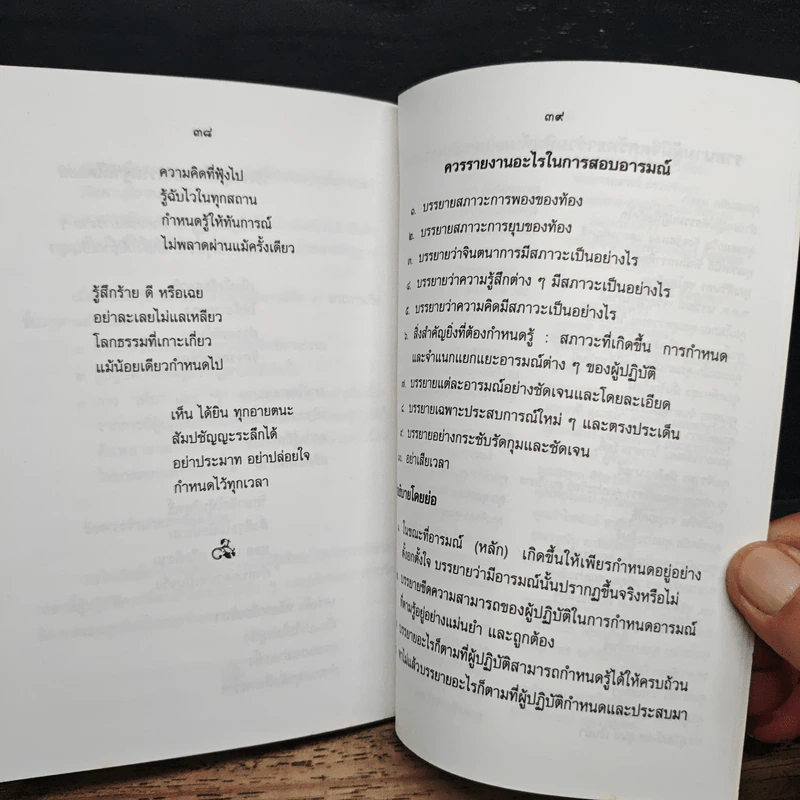 ๓๘
ความคิดที่ฟุ้งไป
รู้ฉับไวในทุกสถาน
กำหนดรู้ให้ทันการณ์
ไม่พลาดผ่านแม้ครั้งเดียว
รู้สึกร้าย ดี หรือเฉย
อย่าละเลยไม่แลเหลียว
โลกธรรมที่เกาะเกี่ยว
แม้น้อยเดียวกำหนดไป
เห็น ได้ยิน ทุกอายตนะ
สัมปชัญญะระลึกได้
อย่าประมาท อย่าปล่อยใจ
กำหนดไว้ทุกเวลา
๓๙
ควรรายงานอะไรในการสอบอารมณ์
๑. บรรยายสภาวะการพองของท้อง
๒. บรรยายสภาวะการยุบของท้อง
๓. บรรยายว่าจินตนาการมีสภาวะเป็นอย่างไร
๔. บรรยายว่าความรู้สึกต่าง ๆ มีสภาวะเป็นอย่างไร
๕. บรรยายว่าความคิดมีสภาวะเป็นอย่างไร
๖. สิ่งสำคัญยิ่งที่ต้องกำหนดรู้ : สภาวะที่เกิดขึ้น การกำหนด
และจำแนกแยกแยะอารมณ์ต่าง ๆ ของผู้ปฏิบัติ
๗. บรรยายแต่ละอารมณ์อย่างชัดเจนและโดยละเอียด
๘. บรรยายเฉพาะประสบการณ์ใหม่ ๆ และตรงประเด็น
๙. บรรยายอย่างกระชับรัดกุมและชัดเจน
๑๐. อย่าเสียเวลา
โดยย่อ
ในขณะที่อารมณ์ (หลัก) เกิดขึ้นให้เพียรกำหนดอยู่อย่าง
ตั้งอกตั้งใจ บรรยายว่ามีอารมณ์นั้นปรากฏขึ้นจริงหรือไม่
บรรยายขีดความสามารถของผู้ปฏิบัติในการกำหนดอารมณ์
ที่ตามรู้อยู่อย่างแม่นยำ และถูกต้อง
บรรยายอะไรก็ตามที่ผู้ปฏิบัติสามารถกำหนดรู้ได้ให้ครบถ้วน
บรรยายอะไรก็ตามที่ผู้ปฏิบัติกำหนดและประสบมา